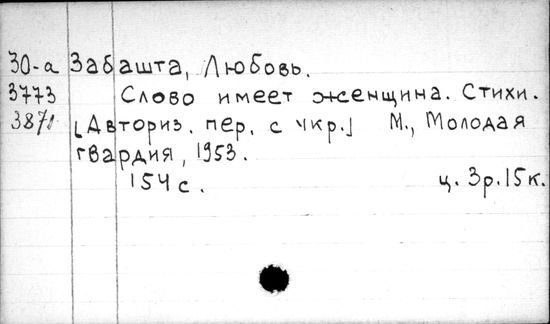 30-а Забашта, Любовь.
3773 Слово имеет женщина. Стихи.
3871 [Авториз. пер. с укр.] М., Молодая
гвардия, 1953.
154 с. ц. 3р.15к.